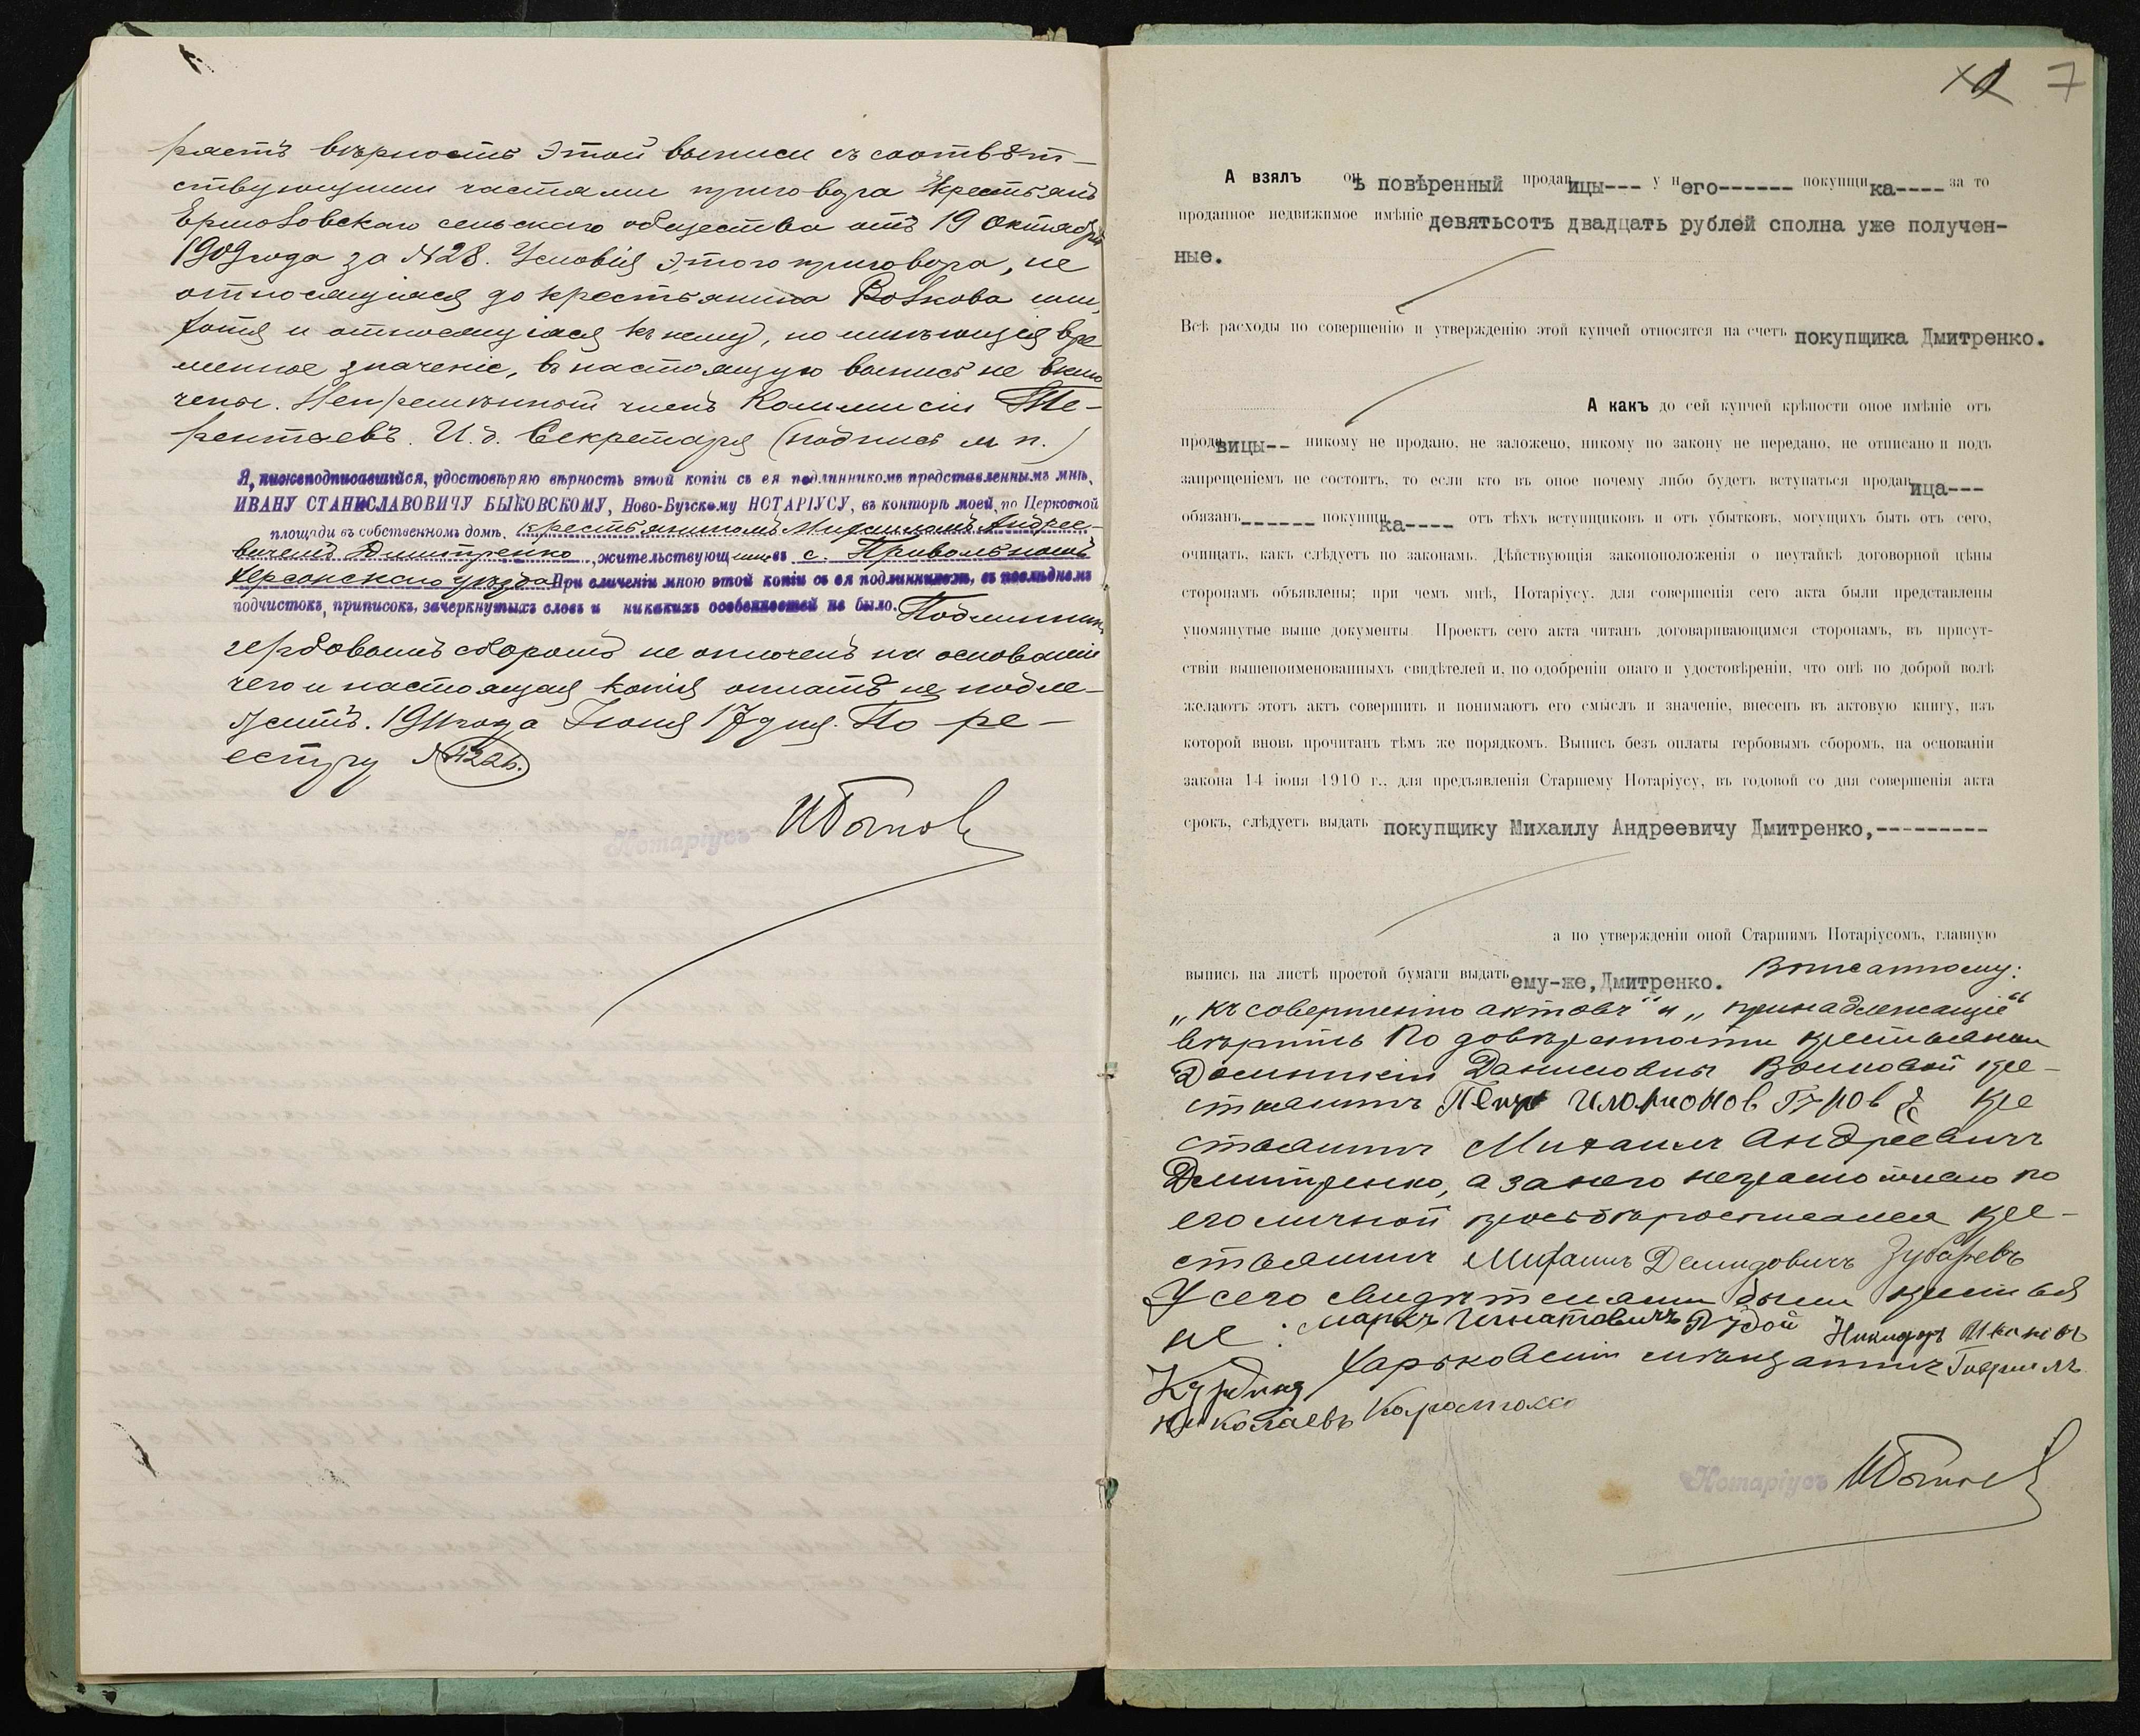 ряетъ вѣрность этой выписи съ соотвѣт-
ствующими частями приговора крестьянъ
Ермоловскаго сельскаго общества отъ 19 октября
1909 года за №28. Условія этого приговора, не
относящіяся до крестьянина Волкова или,
хотя и относящіяся къ нему, но имѣющія вре
менное значеніе, въ настоящую выпись не вклю
чены. Непремѣнный членъ Коммисіи Те-
рентьевъ. И.д. Секретаря (подпись м п.)
Я, нижеподписавшійся, удостовѣряю вѣрность этой копіи съ ея подлинникомъ представленнымъ мнѣ,
ИВАНУ СТАНИСЛАВОВИЧУ БЫКОВСКОМУ, Ново-Бугскому НОТАРІУСУ, въ конторѣ моей, по Церковной
площади въ собственномъ домѣ, крестьяниномъ Михаиломъ Андрее-
вичемъ Дмитренко, жительствующимъ въ с. Привольномъ
Херсонскаго уѣзда При сличеніи мною этой копіи съ ея подлинникомъ, въ послѣднемъ
подчистокъ, приписокъ, зачеркнутыхъ словъ и никакихъ особенностей не было. Подлинник
гербовымъ сборомъ не оплоченъ на основаніи
чего и настоящая копія оплатѣ не подле-
житъ. 1911 года Іюня 17 дня. По ре-
естру №
Нотаріусъ
7
А взялъ онъ повѣренный продавицы--- у него------ покупщика---- за то
проданное недвижимое имѣніе девятьсотъ двадцать рублей сполна уже получен-
ные.
Всѣ расходы по совершенію и утвержденію этой купчей относятся на счетъ покупщика Дмитренко.
А какъ до сей купчей крѣпости оное имѣніе отъ
продавицы-- никому не продано, не заложено, никому по закону не передано, не отписано и подъ
запрещеніемъ не состоитъ, то если кто въ оное почему либо будетъ вступаться продавица---
обязанъ------ покупщика---- отъ тѣхъ вступщиковъ и отъ убытковъ, могущихъ быть отъ сего,
очищать, какъ слѣдуетъ по законамъ. Дѣйствующія законоположенія о неутайкѣ договорной цѣны
сторонамъ объявлены; при чемъ мнѣ, Нотаріусу, для совершенія сего акта были представлены
упомянутые выше документы. Проектъ сего акта читанъ договаривающимся сторонамъ, въ присут-
ствіи вышепоименованныхъ свидѣтелей и, по одобреніи онаго и удостовѣреніи, что онѣ по доброй волѣ
желаютъ этотъ актъ совершить и понимаютъ его смыслъ и значеніе, внесенъ въ актовую книгу, изъ
которой вновь прочитанъ тѣмъ же порядкомъ. Выпись безъ оплаты гербовымъ сборомъ, на основаніи
закона 14 іюня 1910 г., для предъявленія Старшему Нотаріусу, въ годовой со дня совершенія акта
срокъ, слѣдуетъ выдать покупщику Михаилу Андреевичу Дмитренко,---------
а по утвержденіи оной Старшимъ Нотаріусомъ, главную
выпись на листѣ простой бумаги выдать ему-же, Дмитренко. Вписанному:
„къ совершенію актовъ“ и „принадлежащіе“
вѣрить По довѣренности крестьянки
Даниловны Волковой кре-
стьянинъ Петр Иларионов Гуров кре
стьянинъ Михаилъ Андреевичъ
Дмитренко, а за него неграмотнаго по
его личной просьбѣ росписался кре-
стьянинъ Михаилъ Демидовичъ Зубаревъ
У сего свидѣтелями были крестья
не: Игнатовичъ Никифоръ
Харьковскій мѣщанинъ Гавріилъ
Николаевъ
Нотаріусъ